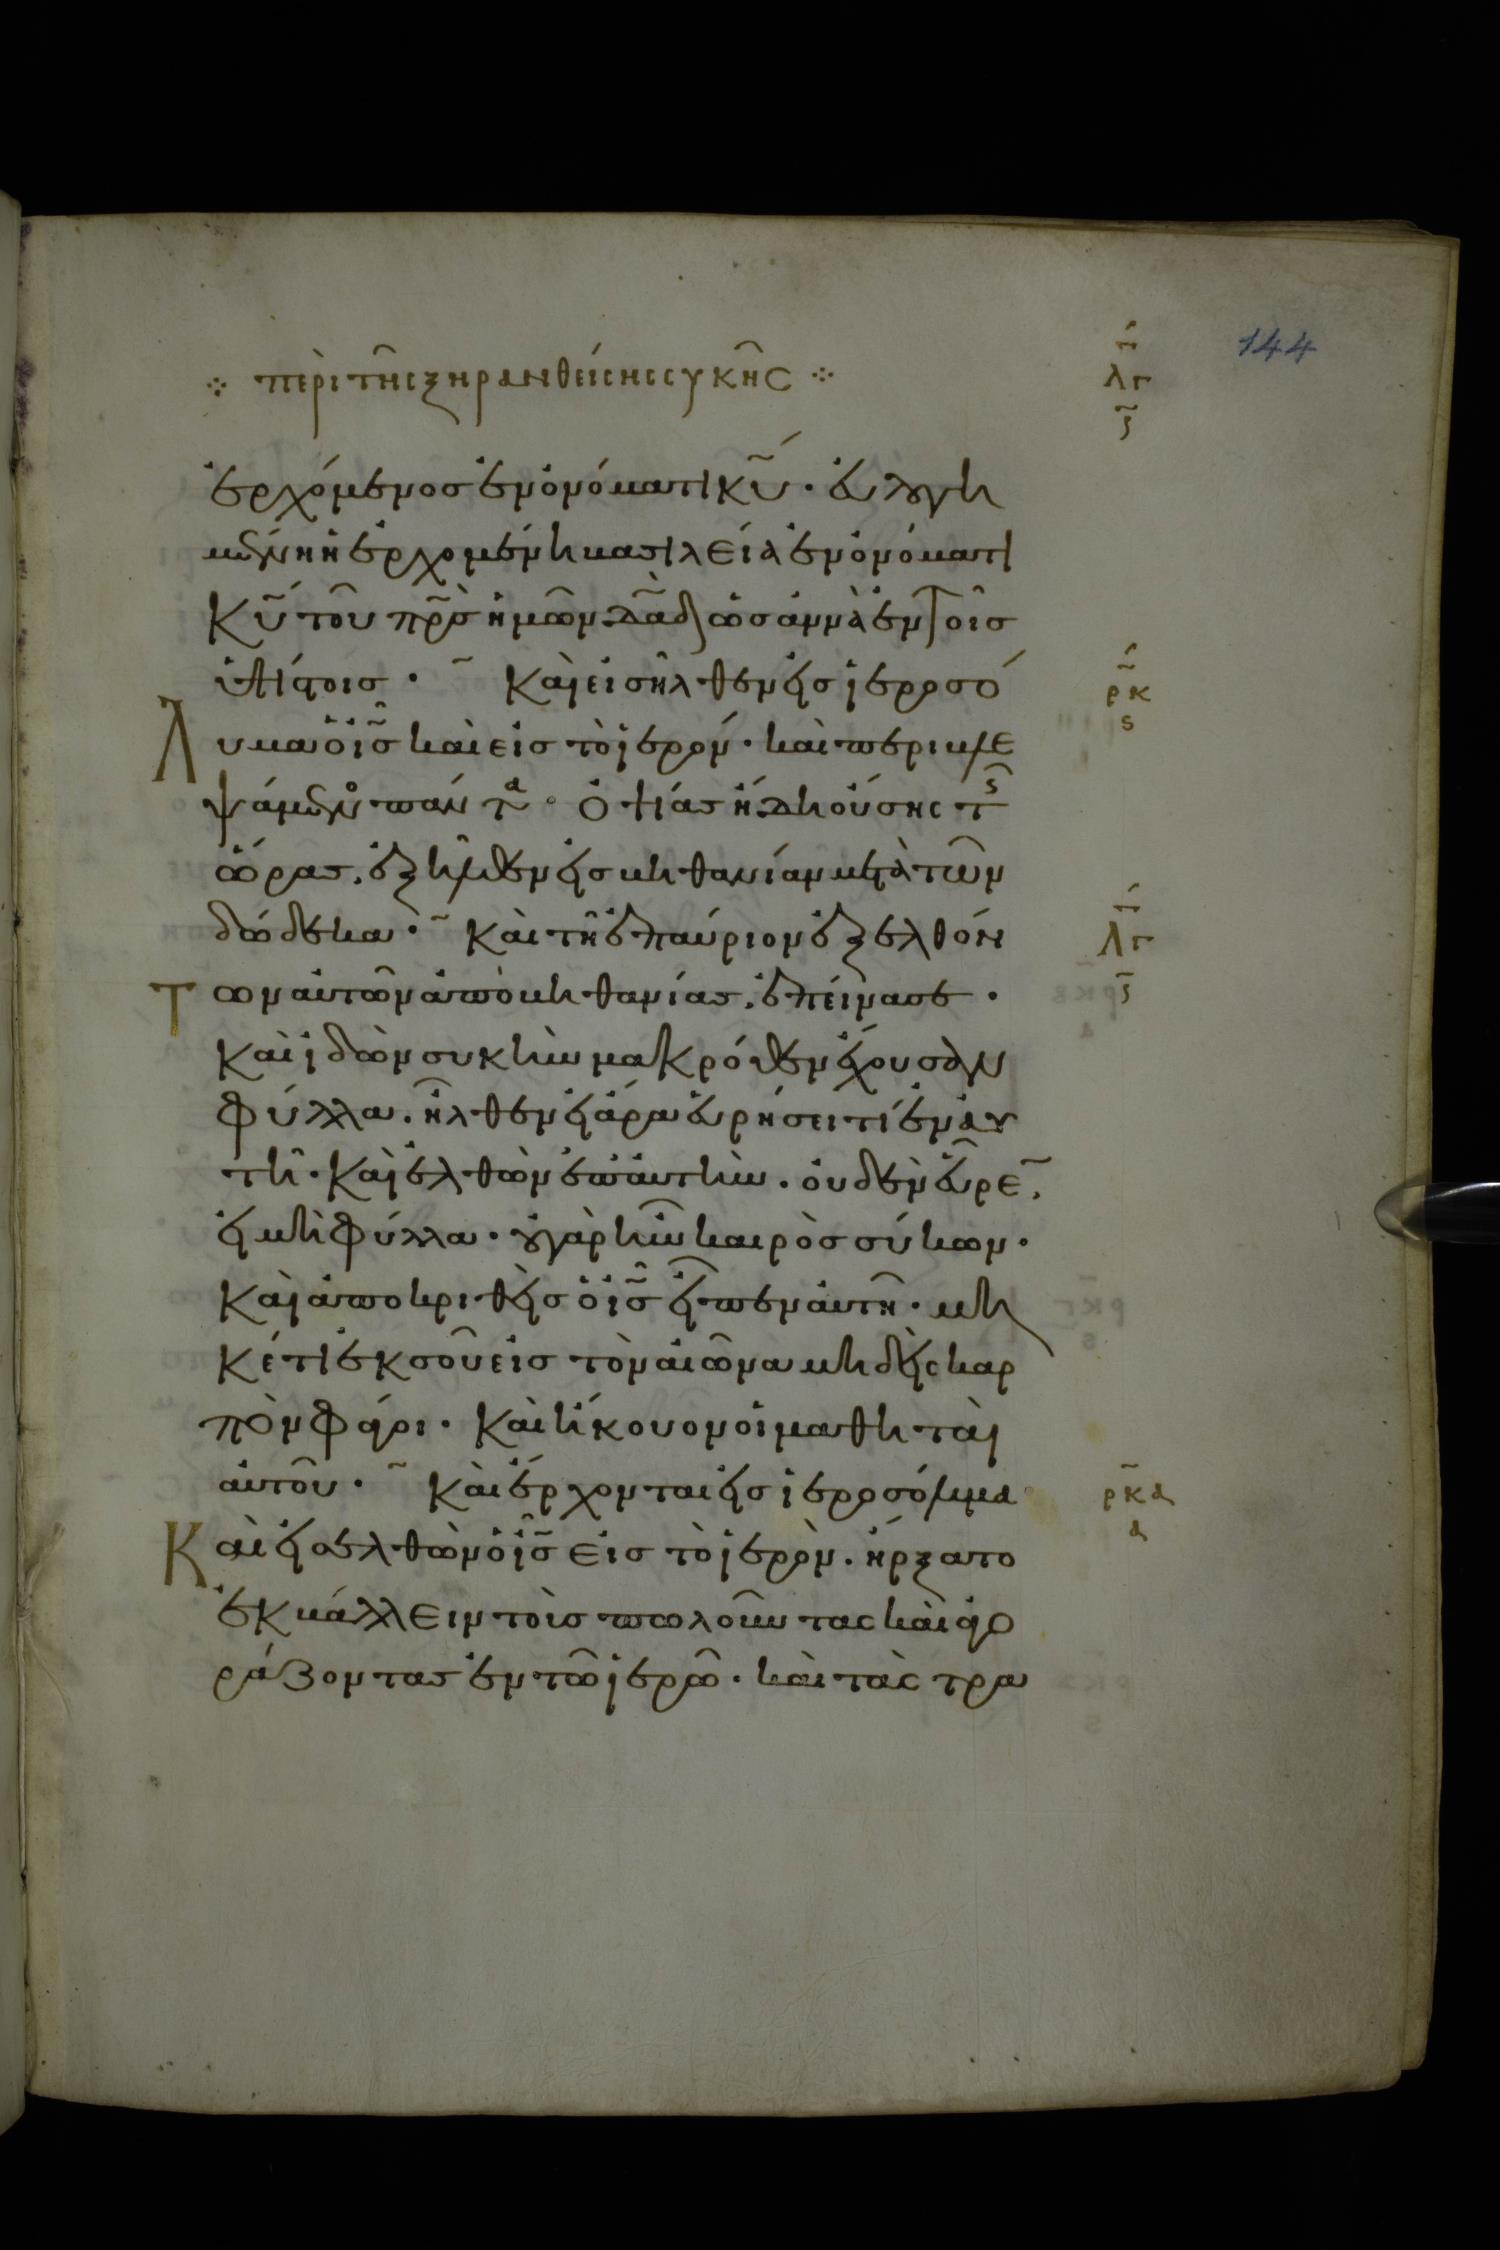 144
περὶ τῆς ξηρανθείσης συκῆς
ἐρχόμενος ἐν ὀνόματι κ̅υ̅· εὐλογη
μένη ἡ ἐρχομένη βασιλεία ἐν ὀνόματι
κ̅υ̅ τοῦ π̅ρ̅ς̅ ἡμῶν δ̅α̅δ̅ ὡσαννὰ ἐν τοῖς
ὑψίστοις· Καὶ εἰσῆλθεν εἰς ἱεροσό
λυμα ὁ ι̅ς̅ καὶ εἰς τὸ ἱερόν· καὶ περιβλε
ψάμενος πάντα· ὀψίας ἤδη οὔσης τῆς
ὥρας, ἐξῆλθεν εἰς βηθανίαν μετὰ τῶν
δώδεκα· Καὶ τῇ ἐπαύριον ἐξελθόν
των αὐτῶν ἀπὸ βηθανίας, ἐπείνασε·
καὶ ἰδὼν συκὴν μακρόθεν ἔχουσαν
φύλλα. ἦλθεν εἰ ἄρα εὑρήσει τι ἐν αὐ
τῇ· καὶ ἐλθὼν ἐπ' αὐτὴν. οὐδὲν εὗρε̅,
εἰ μὴ φύλλα· οὐ γὰρ ἦν καιρὸς σύκων·
Καὶ ἀποκριθεὶς ὁ ι̅ς̅ εἶπεν αὐτῇ· μη
κέτι ἐκ σοῦ εἰς τὸν αἰῶνα μηδεὶς καρ
πὸν φάγοι· Καὶ ἤκουον οἱ μαθηταὶ
αὐτοῦ· Καὶ ἔρχονται εἰς ἱεροσόλυμα
Καὶ εἰσελθὼν ὁ ι̅ς̅ εἰς τὸ ἱερὸν. ἤρξατο
ἐκβάλλειν τοὺς πωλοῦντας καὶ ἀγο
ράζοντας ἐν τῷ ἱερῷ· καὶ τὰς τρα
λγ
ρκ
ς
λγ
ρκα
α